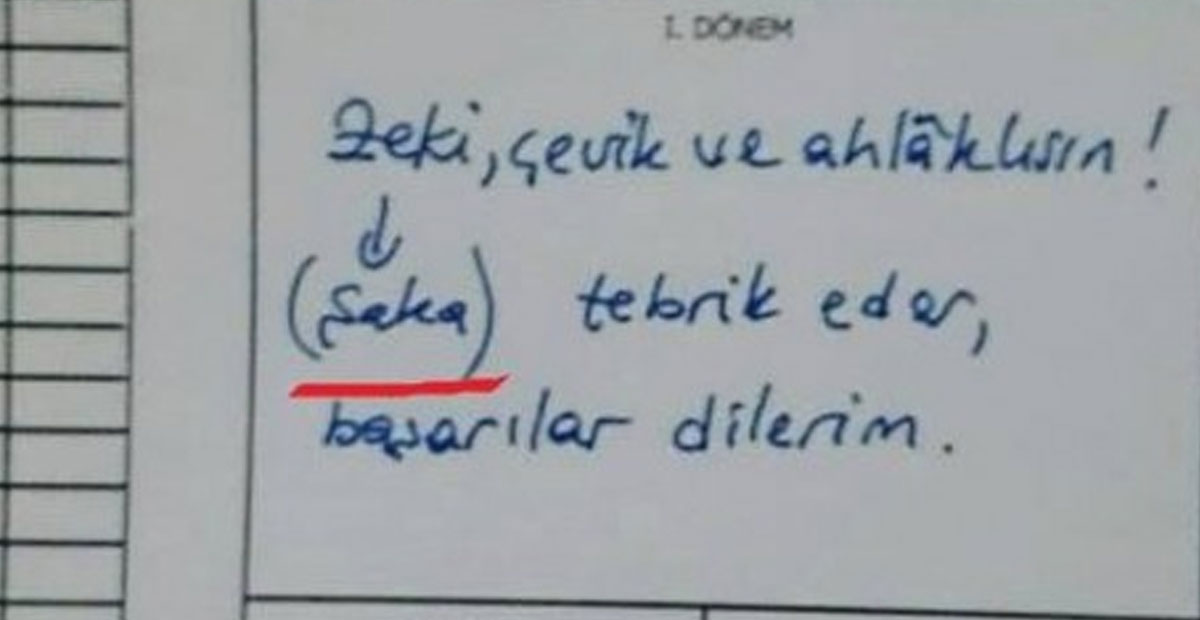 I. DÖNEM
Zeki, çevik ve ahlâklısın!
(Şaka) tebrik eder,
başarılar dilerim.